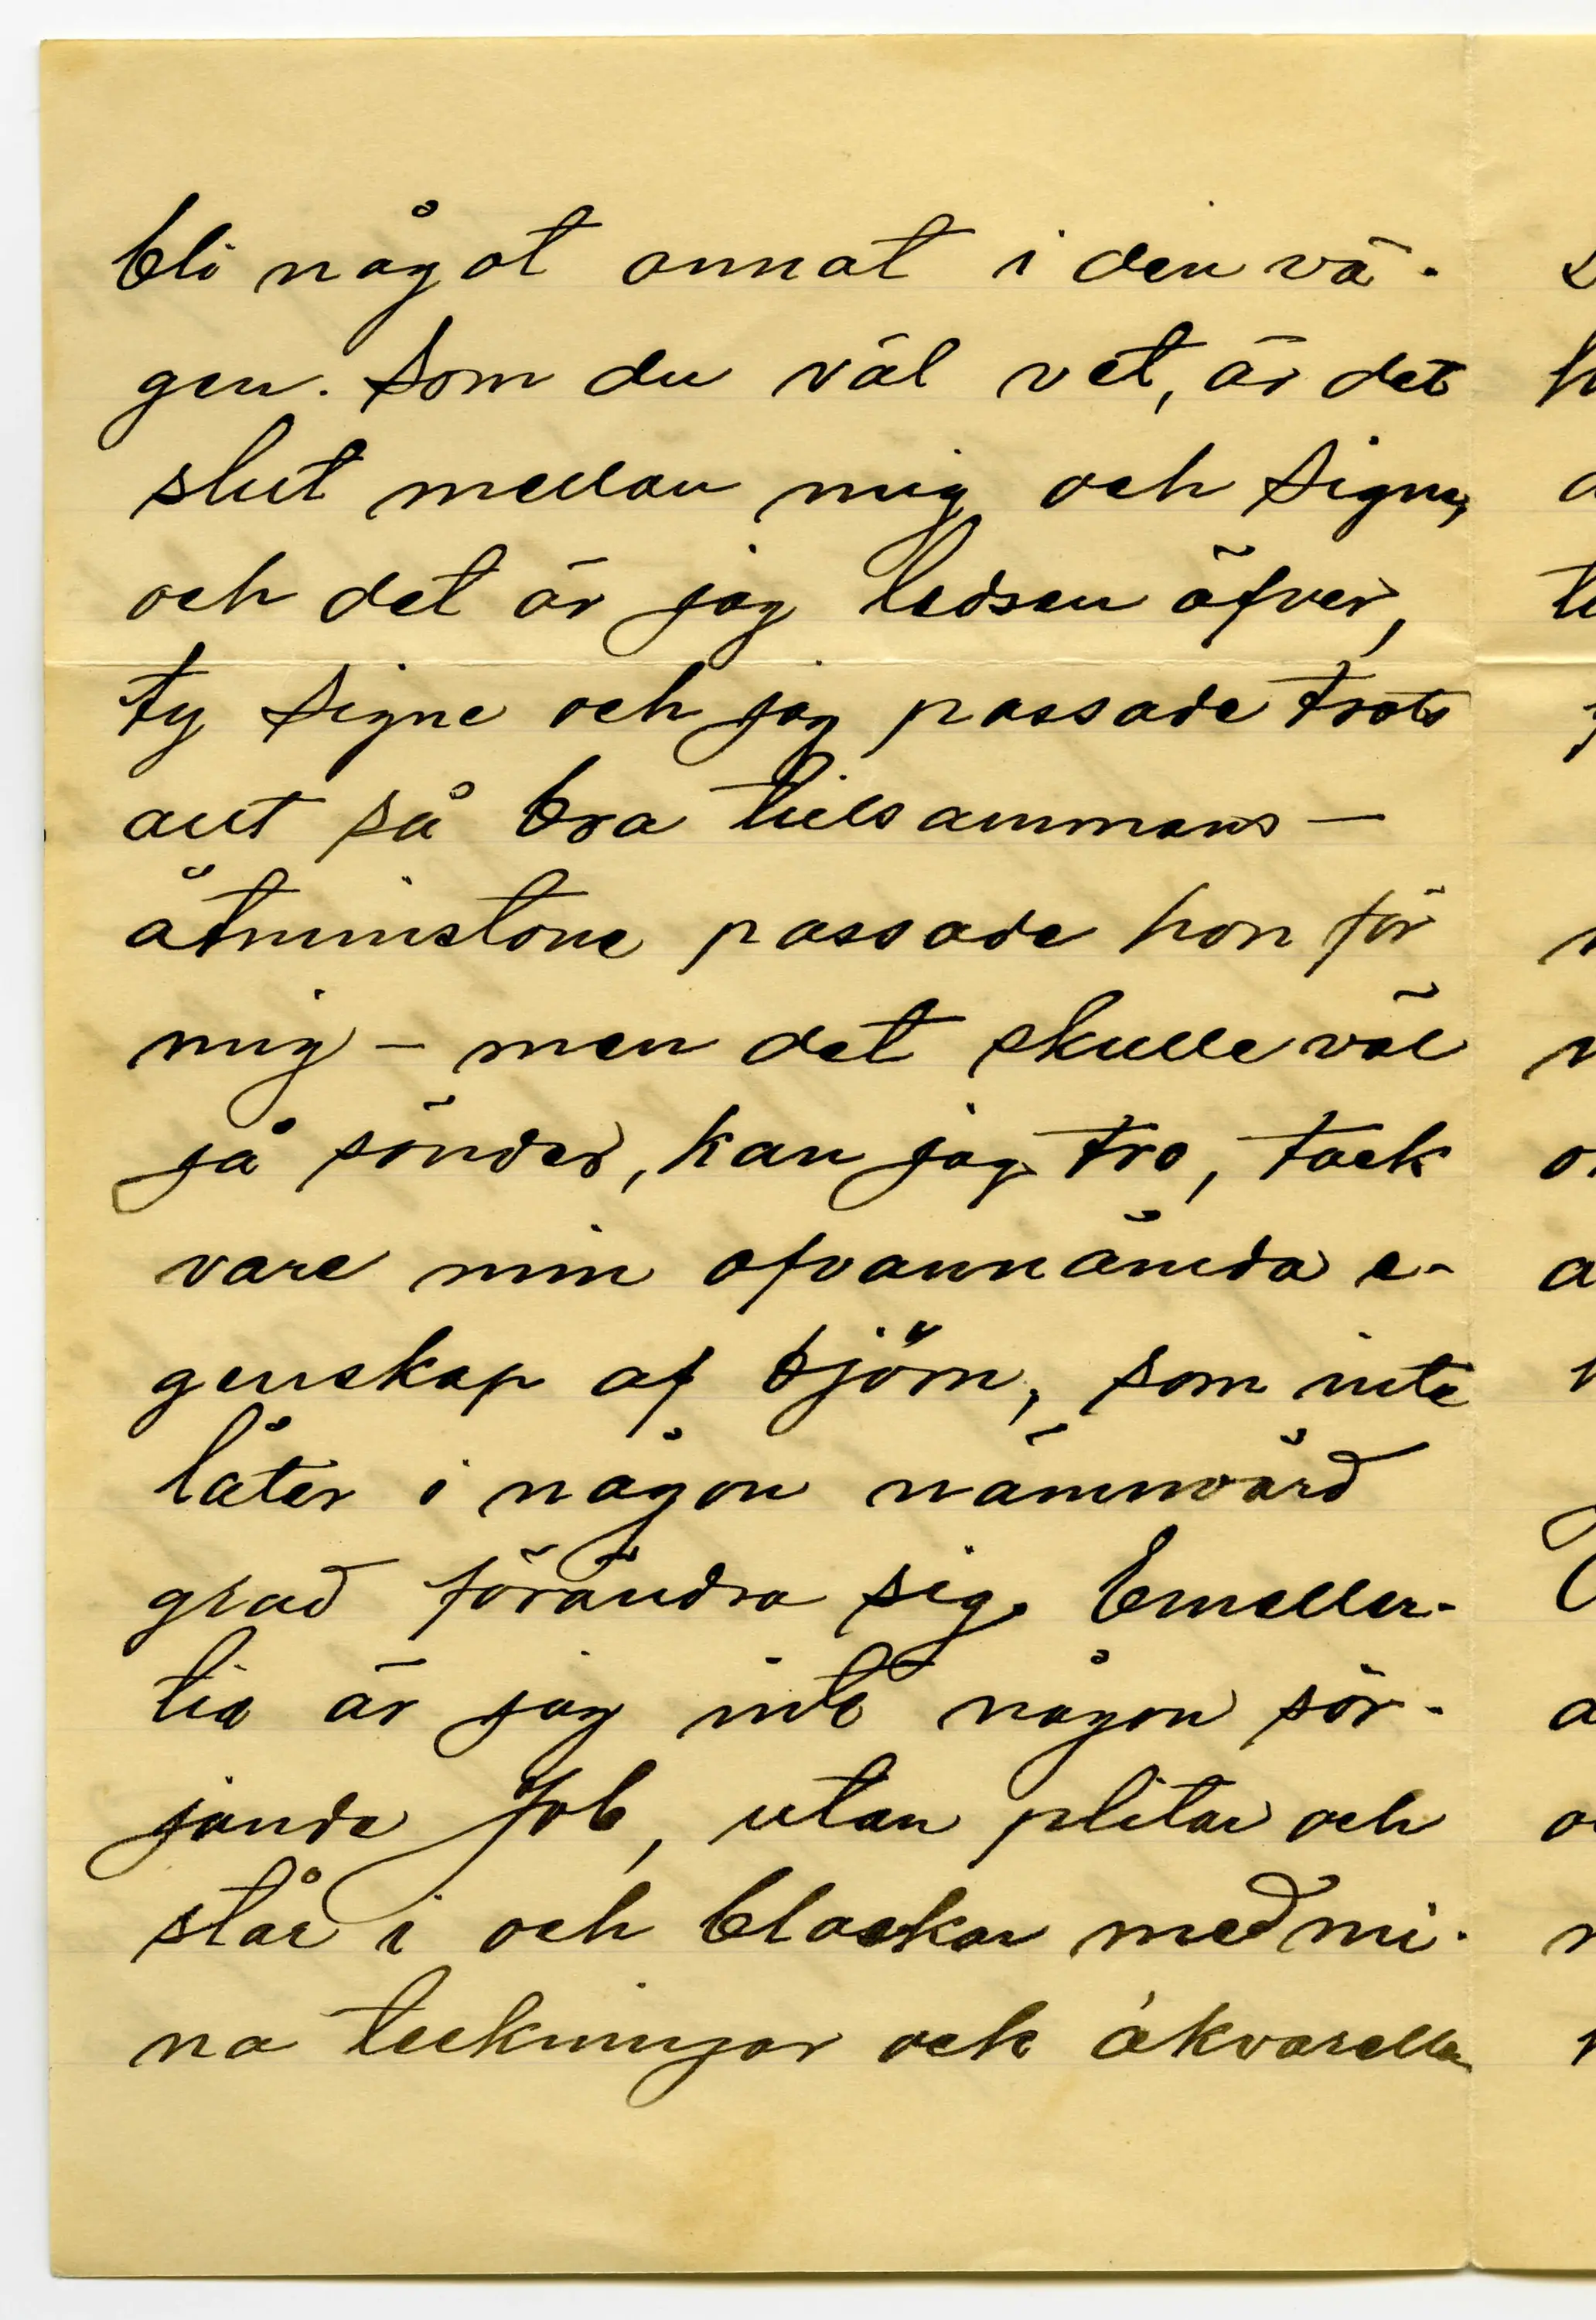 bli något annat i den vä-
gen. Som du väl vet, är det
slut mellan mig och Signe,
och det är jag ledsen öfver,
ty Signe och jag passade trots
allt så bra tillsammans —
åtminstone passade hon för
mig — men det skulle väl
gå sönder, kan jag tro, tack
vare min ofvannämda e-
genskap af björn, som inte
låter i någon nämnvärd
grad förändra sig. Emeller-
tid är jag inte någon sör-
jande Job, utan plitar och
står i och blaskar med mi-
na teckningar och akvareller